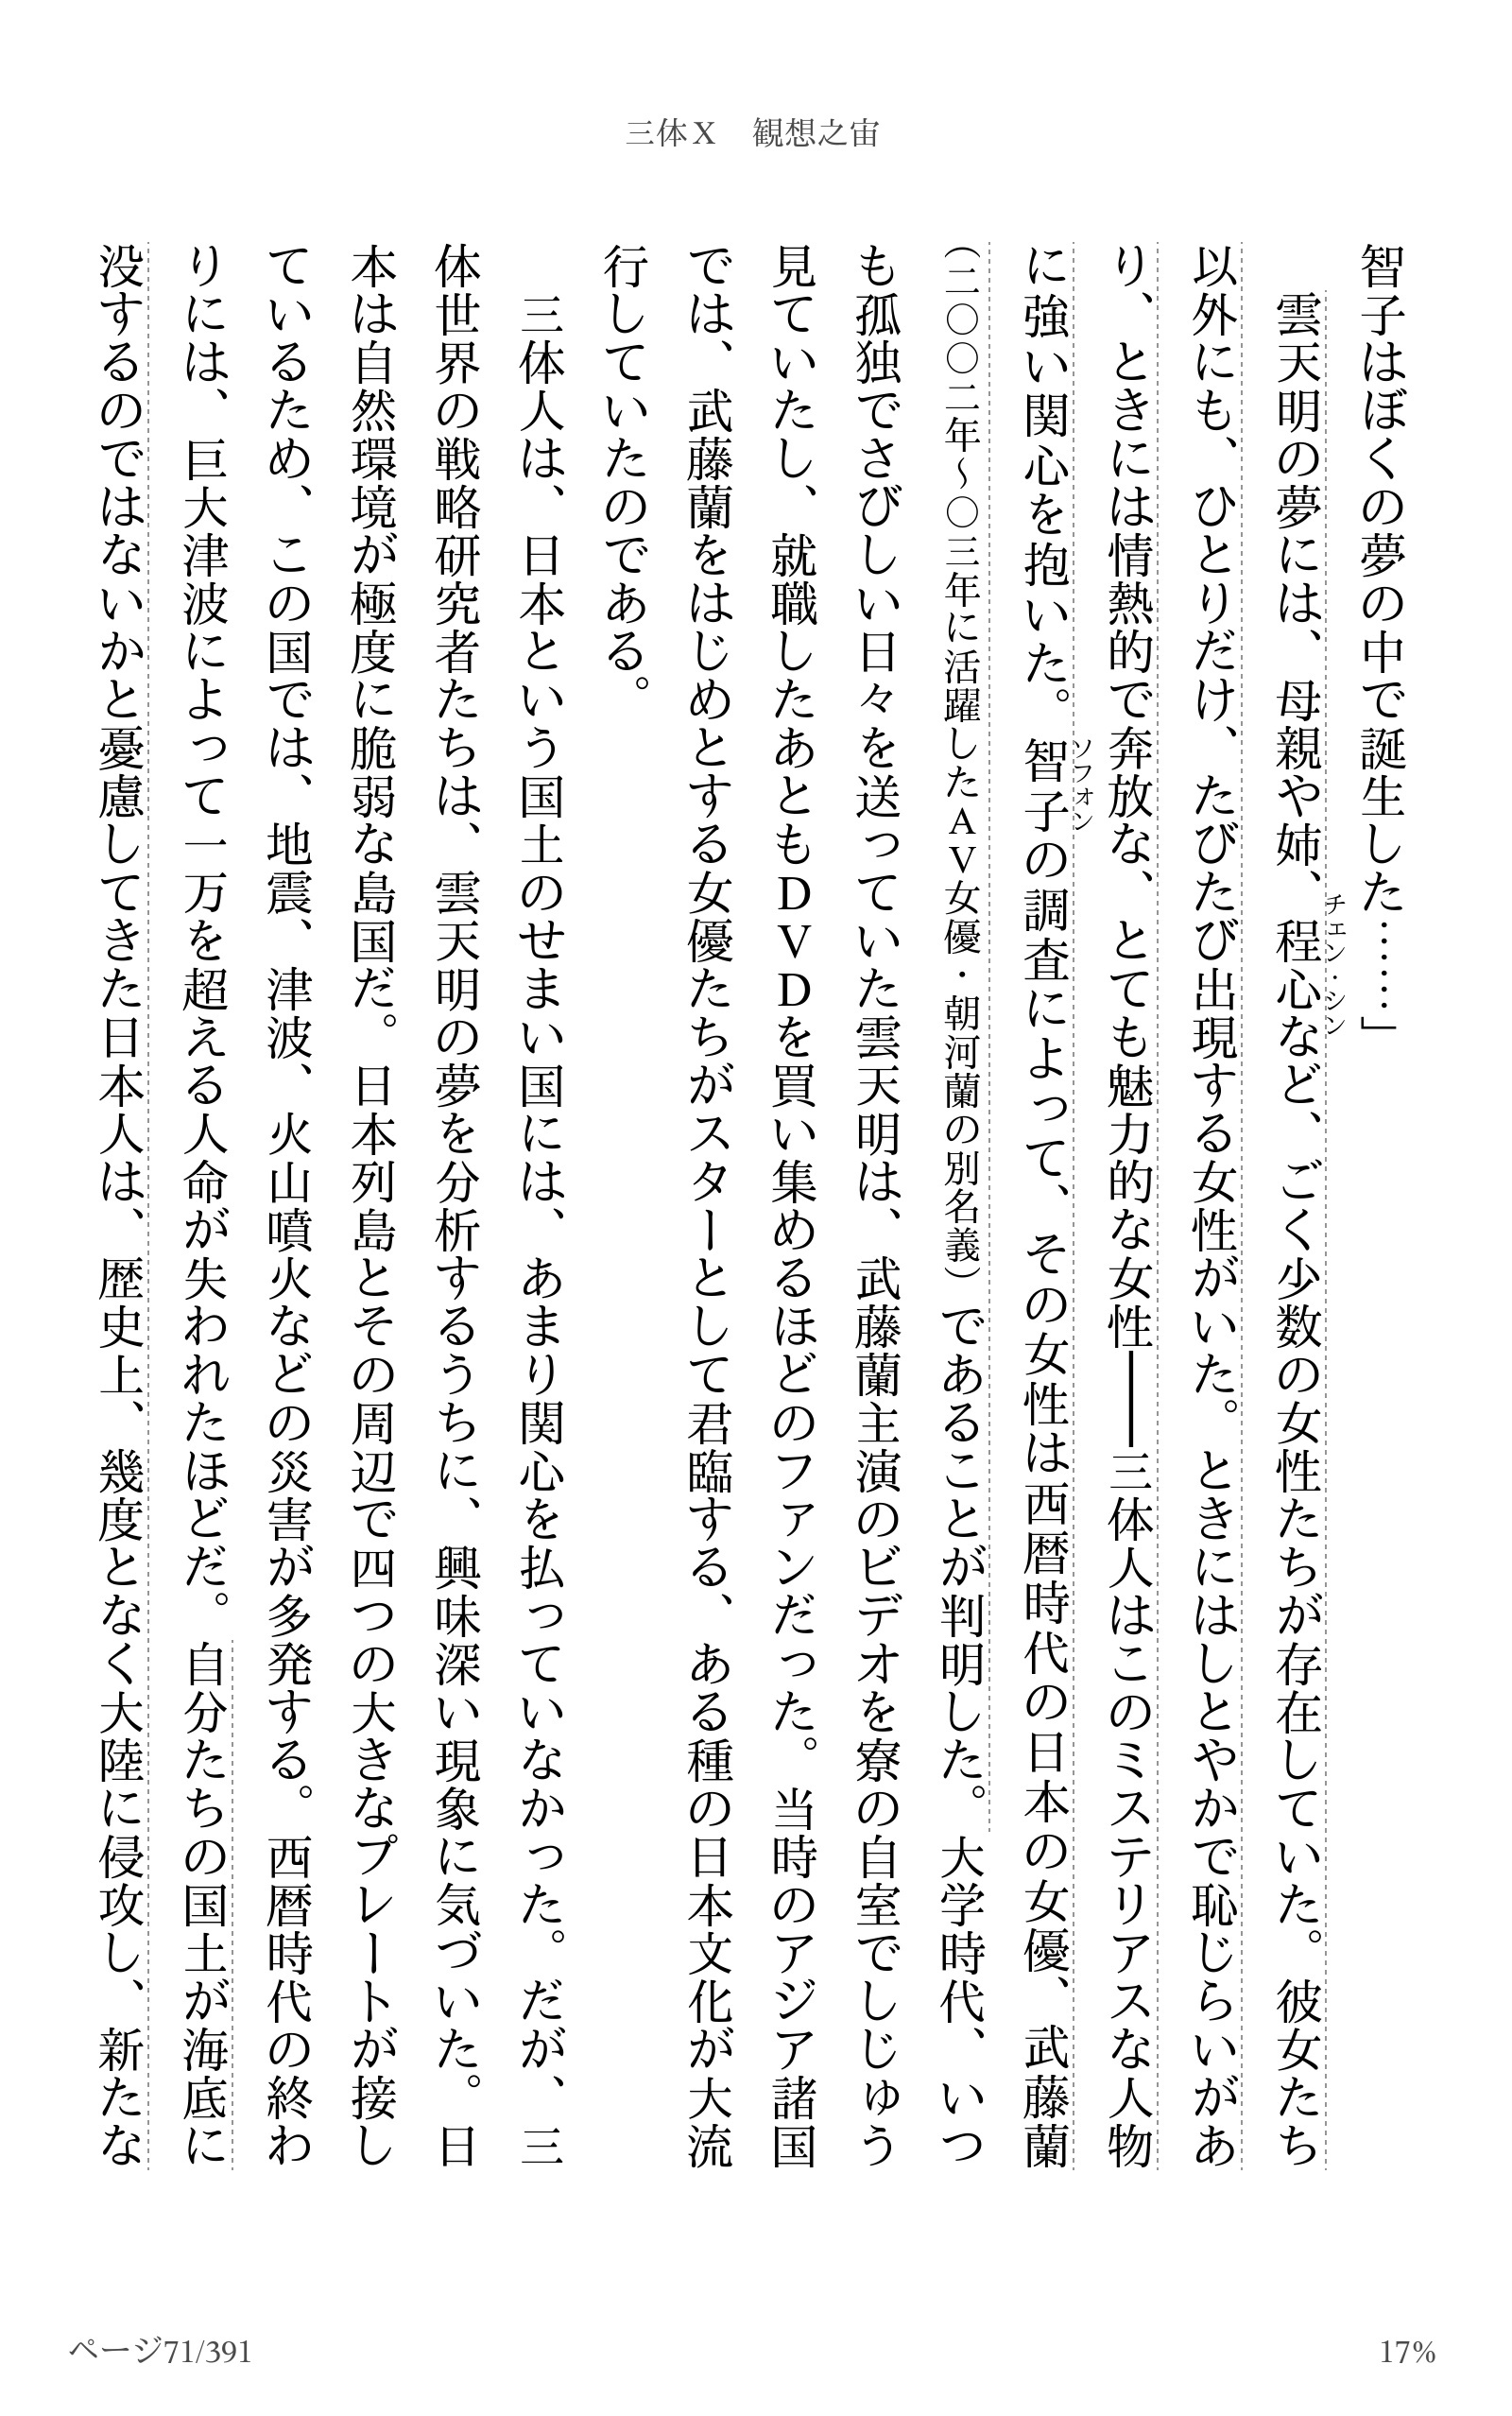 三体X　観想之宙
智子はぼくの夢の中で誕生した……」
　雲天明の夢には、母親や姉、程心など、ごく少数の女性たちが存在していた。彼女たち
チェン・シン
以外にも、ひとりだけ、たびたび出現する女性がいた。ときにはしとやかで恥じらいがあ
り、ときには情熱的で奔放な、とても魅力的な女性――三体人はこのミステリアスな人物
に強い関心を抱いた。智子の調査によって、その女性は西暦時代の日本の女優、武藤蘭
ソフォン
（二〇〇二年～〇三年に活躍したAV女優・朝河蘭の別名義）であることが判明した。大学時代、いつ
も孤独でさびしい日々を送っていた雲天明は、武藤蘭主演のビデオを寮の自室でしじゅう
見ていたし、就職したあともDVDを買い集めるほどのファンだった。当時のアジア諸国
では、武藤蘭をはじめとする女優たちがスターとして君臨する、ある種の日本文化が大流
行していたのである。
　三体人は、日本という国土のせまい国には、あまり関心を払っていなかった。だが、三
体世界の戦略研究者たちは、雲天明の夢を分析するうちに、興味深い現象に気づいた。日
本は自然環境が極度に脆弱な島国だ。日本列島とその周辺で四つの大きなプレートが接し
ているため、この国では、地震、津波、火山噴火などの災害が多発する。西暦時代の終わ
りには、巨大津波によって一万を超える人命が失われたほどだ。自分たちの国土が海底に
没するのではないかと憂慮してきた日本人は、歴史上、幾度となく大陸に侵攻し、新たな
ページ71/391
17%